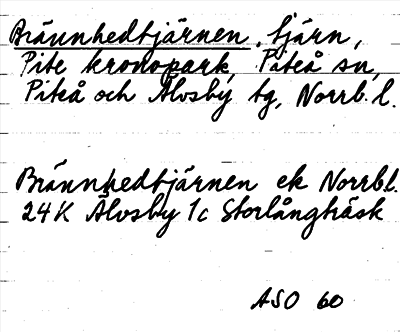 Brännhedtjärnen, tjärn,
Pite kronopark, Piteå sn,
Piteå och Älvsby tg, Norrb. l.
Brännhedtjärnen ek Norrb l.
24K Älvsby 1c Storlångträsk
ASO 60